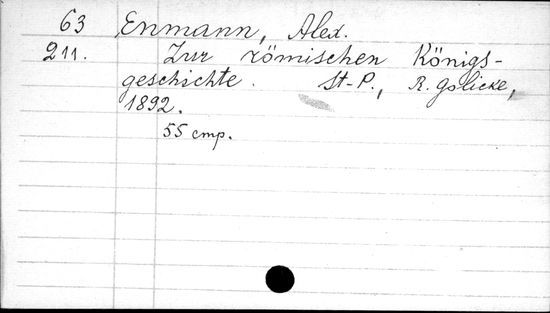 63 Enmann, Alex.
211. Zur römischen Königs-
geschichte. St-P., R. Golicke,
1892.
55 стр.